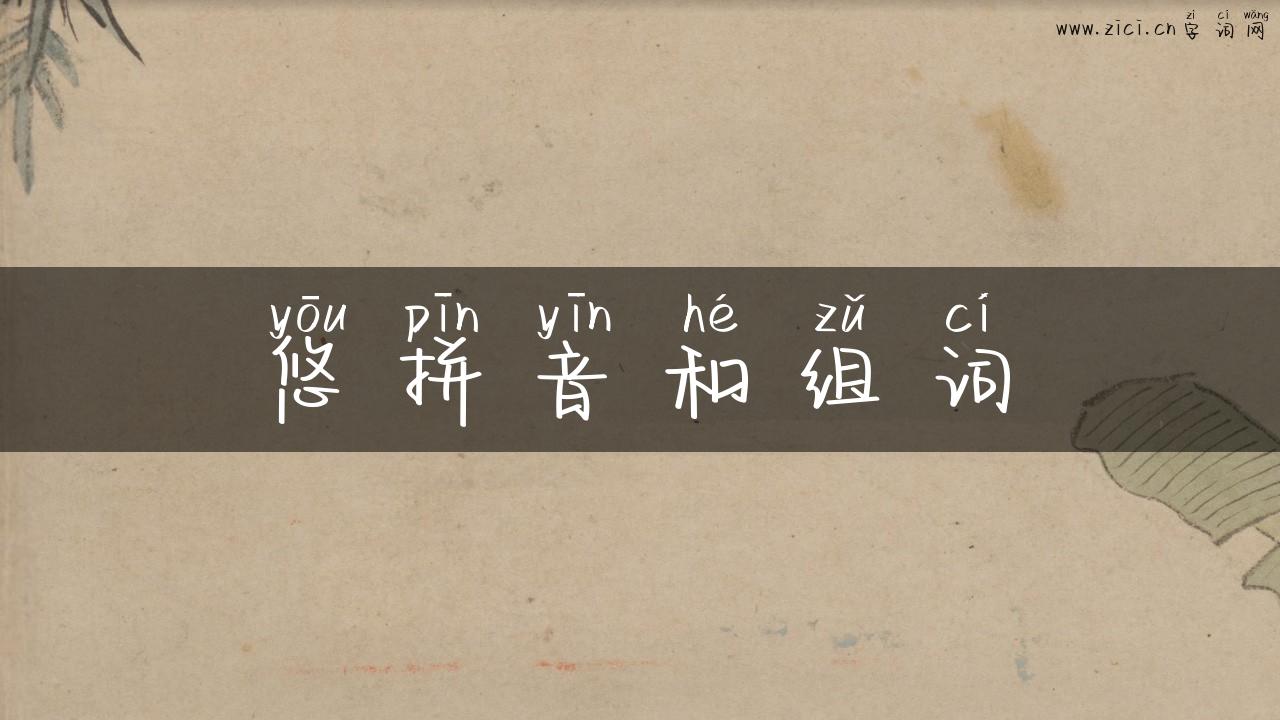 zì cí wǎng
www.zici.cn 字词网
yōu pīn yīn hé zǔ cí
悠拼音和组词